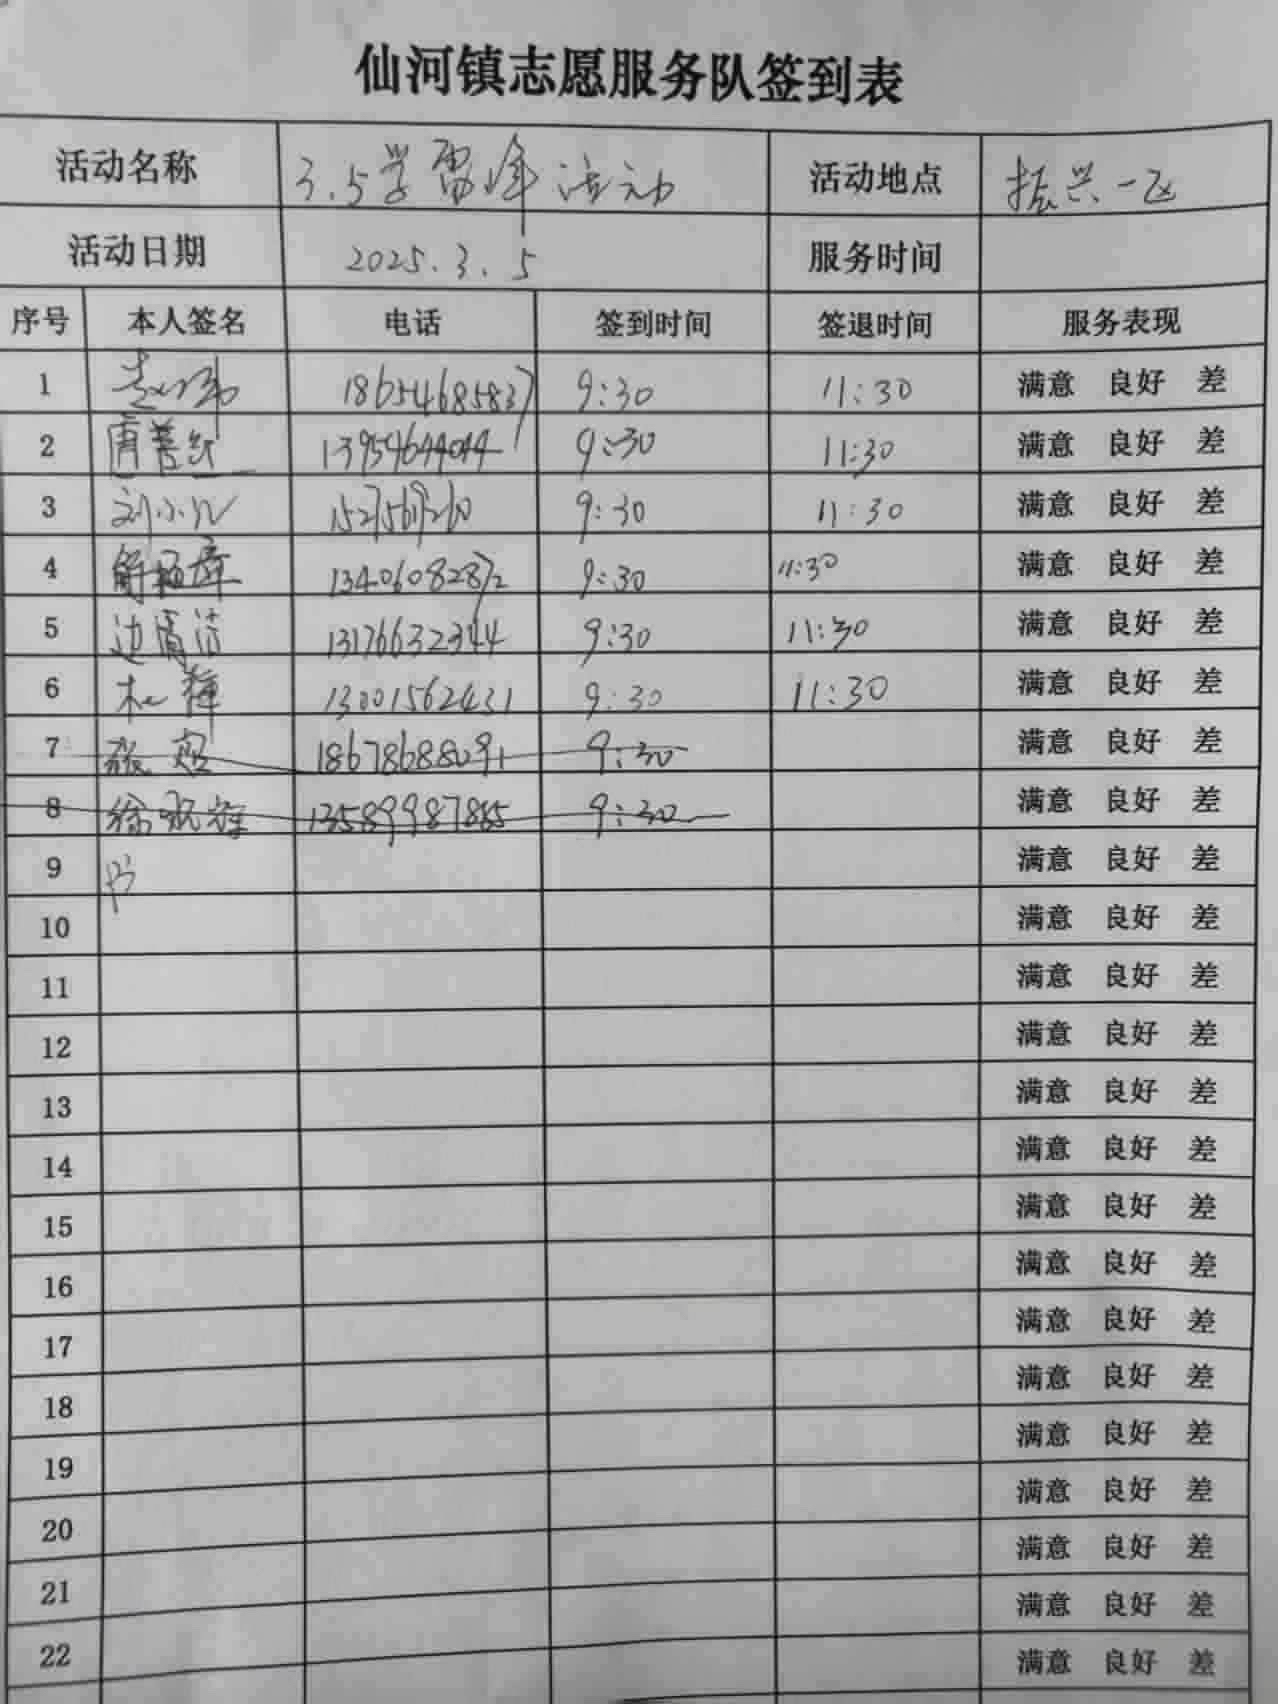 仙河镇志愿服务队签到表
活动名称 3.5学雷峰活动 活动地点 振兴一区
活动日期 2025.3.5 服务时间
序号 本人签名 电话 签到时间 签退时间 服务表现
1 18654685837 9:30 11:30 满意 良好 差
2 13954644044 9:30 11:30 满意 良好 差
3 刘小儿 9:30 11:30 满意 良好 差
4 13406082872 9:30 11:30 满意 良好 差
5 边清洁 13176632344 9:30 11:30 满意 良好 差
6 13001562431 9:30 11:30 满意 良好 差
7 18678688091 9:30 满意 良好 差
8 13589987885 9:30 满意 良好 差
9 满意 良好 差
10 满意 良好 差
11 满意 良好 差
12 满意 良好 差
13 满意 良好 差
14 满意 良好 差
15 满意 良好 差
16 满意 良好 差
17 满意 良好 差
18 满意 良好 差
19 满意 良好 差
20 满意 良好 差
21 满意 良好 差
22 满意 良好 差